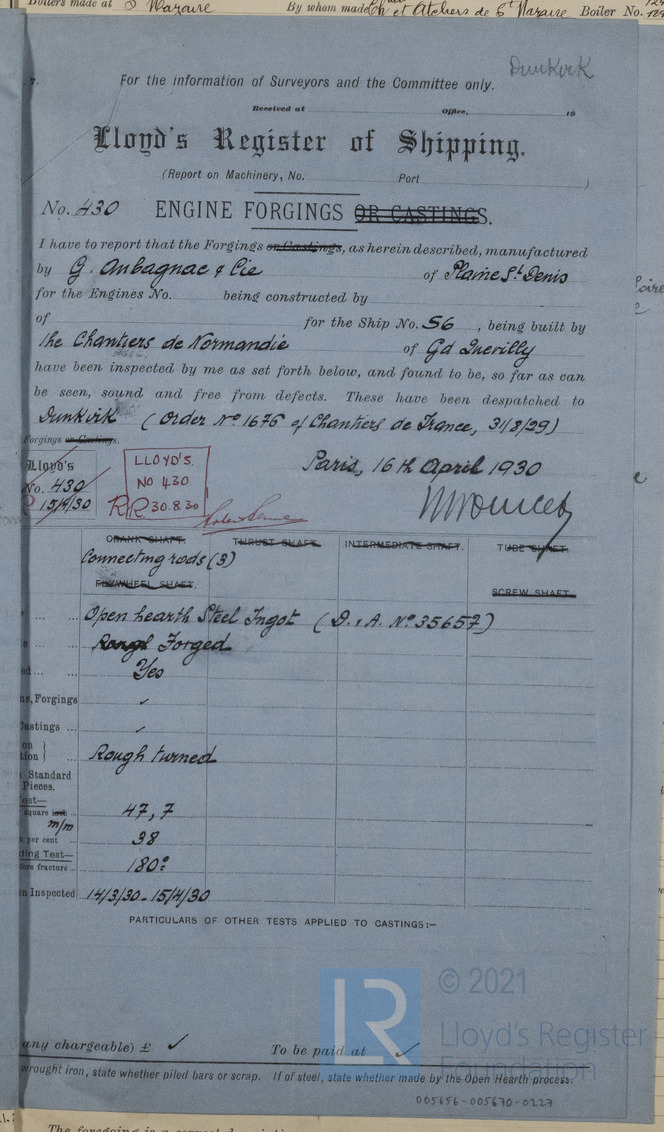 Boilers made at St Nazaire By whom made Ch et Ateliers de St Nazaire Boiler No.
Dunkirk
7.
For the information of Surveyors and the Committee only.
Received at Office, 19
Lloyd's Register of Shipping.
(Report on Machinery, No. Port )
No. 430 ENGINE FORGINGS OR CASTINGS.
I have to report that the Forgings or Castings, as herein described, manufactured
by G. Aubagnac & Cie of Plaine St Denis
for the Engines No. being constructed by
of for the Ship No. 56, being built by
the Chantiers de Normandie of Gd Quevilly
have been inspected by me as set forth below, and found to be, so far as can
be seen, sound and free from defects. These have been despatched to
Dunkirk (Order No 1676 of Chantiers de France, 31/8/29)
Forgings or Castings.
Lloyd's
No. 430
15/4/30
LLOYD'S
No 430
RR 30.8.30
Paris, 16th April 1930
CRANK SHAFT. THRUST SHAFT. INTERMEDIATE SHAFT. TUBE SHAFT.
Connecting rods (3)
FLYWHEEL SHAFT. SCREW SHAFT.
Open hearth Steel Ingot (D. & A. No 35657)
Rough Forged
ed Yes
ns, Forgings ✓
Castings ... ✓
on
tion Rough turned
Standard
Pieces.
est—
square inch m/m 47,7
per cent 38
ding Test—
fore fracture 180°
n Inspected 14/3/30 - 15/4/30
PARTICULARS OF OTHER TESTS APPLIED TO CASTINGS:—
© 2021
LR
Lloyd's Register
Foundation
any chargeable) £ ✓ To be paid at ✓
wrought iron, state whether piled bars or scrap. If of steel, state whether made by the Open Hearth process.
005656-005670-0227